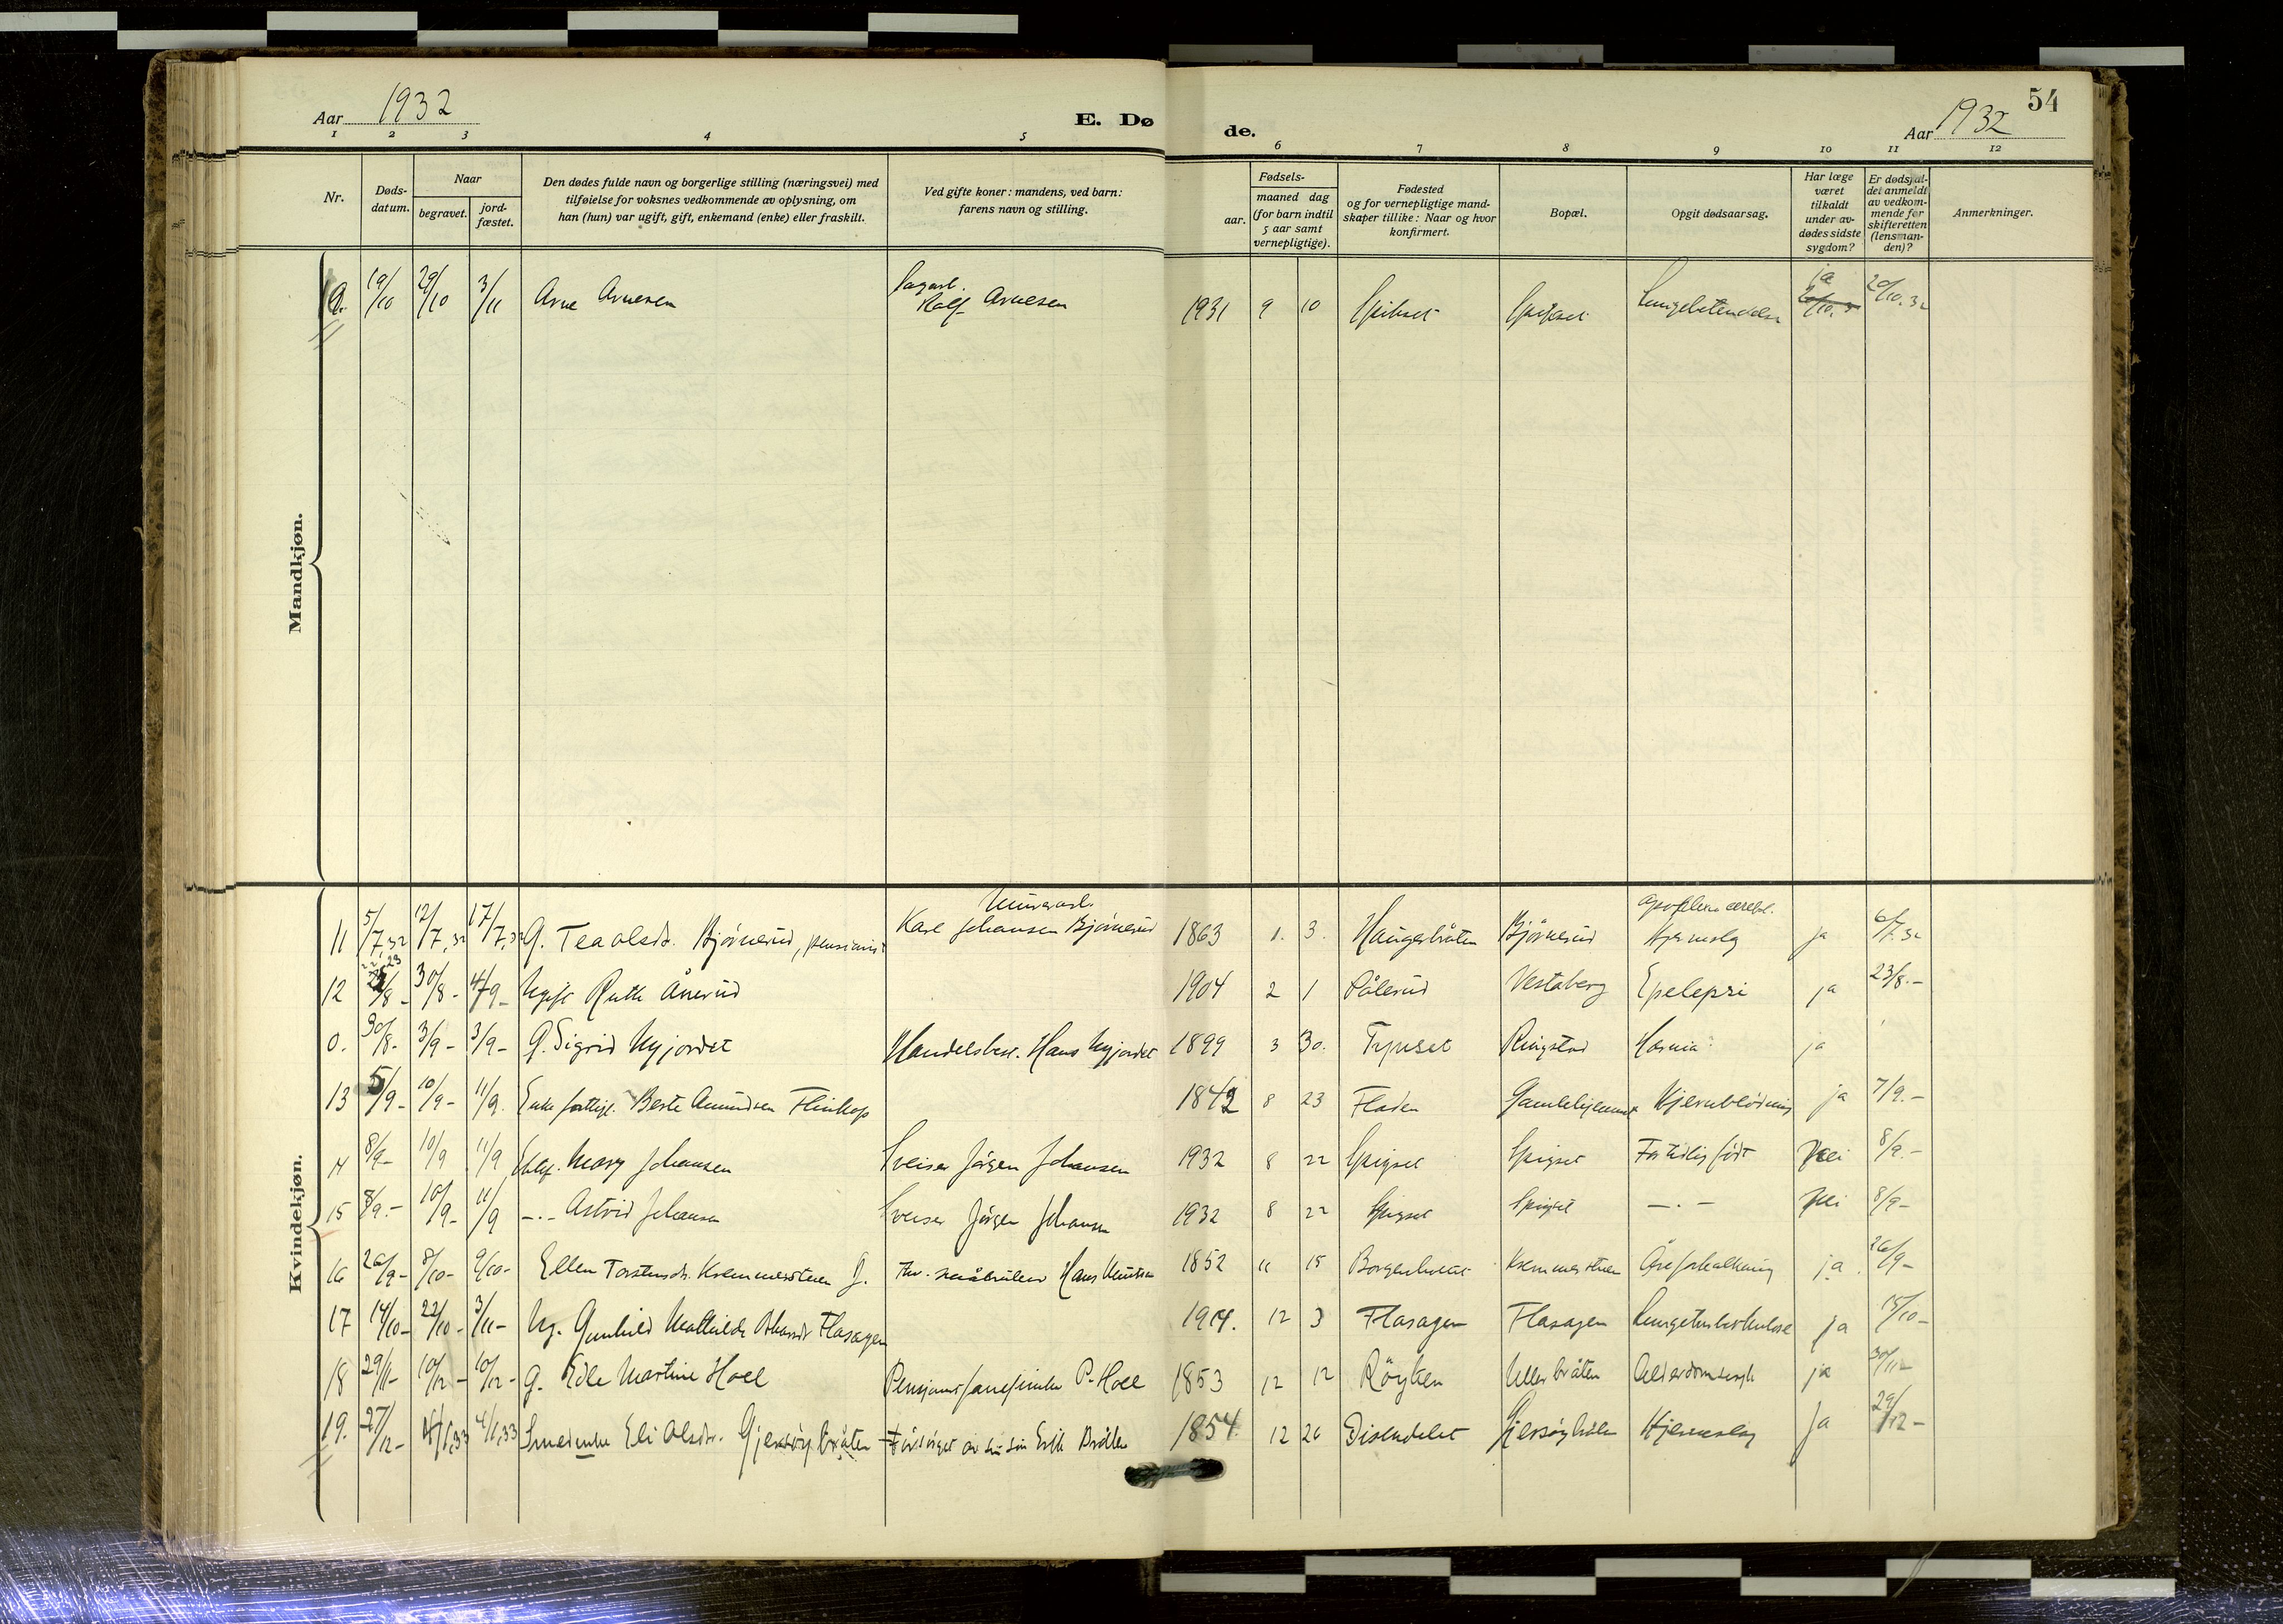 Aar 1932
E. Dø
de.
Aar 1932
54
1 2 3 4 5 6 7 8 9 10 11 12
Nr.
Døds-
datum.
Naar
begravet.
jord-
fæstet.
Den dødes fulde navn og borgerlige stilling (næringsvei) med
tilføielse for voksnes vedkommende av oplysning, om
han (hun) var ugift, gift, enkemand (enke) eller fraskilt.
Ved gifte koner: mandens, ved barn:
farens navn og stilling.
Fødsels-
aar.
maaned dag
(for barn indtil
5 aar samt
vernepligtige).
Fødested
og for vernepligtige mand-
skaper tillike: Naar og hvor
konfirmert.
Bopæl.
Opgit dødsaarsag.
Har læge
været
tilkaldt
under av-
dødes sidste
sygdom?
Er dødsfal-
det anmeldt
av vedkom-
mende for
skifteretten
(lensman-
den)?
Anmerkninger.
Mandkjøn.
19/10 29/10 3/11 Arne Arnesen Sagarb. Rolf Arnesen 1931 9 10 Spikset Spigset Lungebetendelse ja 20/10.32
Kvindekjøn.
11 5/7.32 12/7.32 17/7.32 G. Tea Olsdr. Bjørnerud, pensionist Murerarb. Karl Johansen Bjørnerud 1863 1. 3. Haugerbråten Bjørnerud Apoplexia cerebri. Hjerneslag ja 6/7.32
12 30/8- 4/9- Ugift Ruth Ånerud 1904 2 1 Pålerud Vestaberg Epelepsi ja 23/8.-
0. 30/8- 3/9- 3/9- G. Sigrid Nyjordet Handelsbest. Hans Nyjordet 1899 3 30. Tynset Ringstad ja
13 5/9- 10/9- 11/9. Enke fattigl. Berte Amundsen Flinkop 1842 8 23 Fladen Gamlehjemmet Hjerneblødning ja 7/9.-
14 8/9- 10/9 11/9 Mary Johansen Sveiser Jörgen Johansen 1932 8 22 Spigset Spigset For tidlig født Nei 8/9.-
15 8/9.- 10/9- 11/9 -.- Astrid Johansen Sveiser Jörgen Johansen 1932 8 22 Spigset Spigset -.- Nei 8/9-
16 26/9- 8/10- 9/10- Ellen Torstensdr. Kremmerstuen G. Hans Knutsen 1852 11 15 Kremmerstuen Åreforkalkning ja 26/9-
17 14/10- 22/10- 3/11- Ug. Gunhild Mathilde Flasagen 1914. 12 3 Flasagen Flasagen Lungetuberkulose ja 15/10-
18 29/11- 10/12- 10/12- G. Edle Martine Hoel P. Hoel 1853 12 12 Röyken Ullerbråten Alderdomssvagh. ja 30/11-
19. 27/12- 4/1.33 4/1.33 Smedenke Eli Olsdr. Gjersöybråten Forsörget av sin sön Erik Bråten 1854 12 26 Disendalet Gjersöybråten Hjerneslag Ja 29/12-